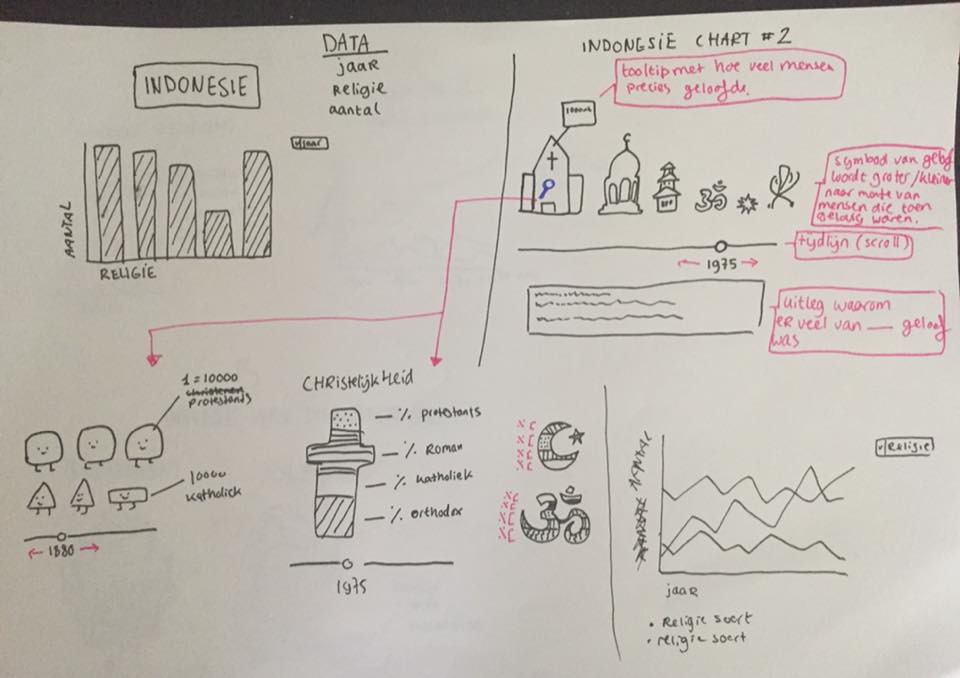 INDONESIE
DATA
jaar
Religie
aantal
jaar
AANTAL
RELIGIE
INDONGSIE CHART #2
tooltip met hoe veel mensen
precies geloofde.
symbool van geloof
wordt groter/kleiner
naar mate van
mensen die toen
gelovig waren.
tijdlijn (scroll)
1975
uitleg waarom
ER veel van — geloof
was
1 = 10000
christenen
Protestants
10000
Katholiek
1880
CHRistelijkHeid
% protestants
% Roman
% Katholiek
% orthodox
1975
%
%
%
%
%
%
%
%
Religie
jaar
• Religie soort
• religie soort